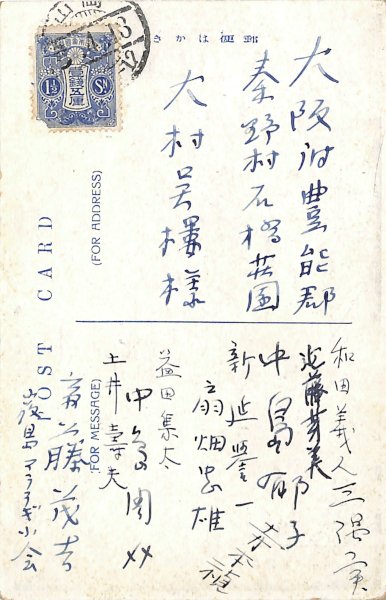 郵便はかき
大阪府豊能郡
秦野村石橋荘園
大村呉樓様
1½ Sn
壹錢五厘
POST CARD
(FOR ADDRESS)
(FOR MESSAGE)
和田義人
三隅
近藤芳美
中島郁子
新延誉一
赤木
扇畑忠雄
益田集太
中島周介
土井幸夫
斎藤茂吉
廣島アララギ小会